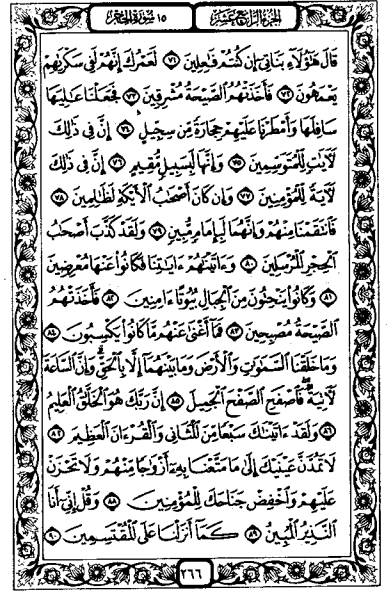 الجزء الرابع عشر ١٥ سورة الحجر
قَالَ هَٰٓؤُلَآءِ بَنَاتِيٓ إِن كُنتُمْ فَٰعِلِينَ ٧١ لَعَمْرُكَ إِنَّهُمْ لَفِي سَكْرَتِهِمْ
يَعْمَهُونَ ٧٢ فَأَخَذَتْهُمُ ٱلصَّيْحَةُ مُشْرِقِينَ ٧٣ فَجَعَلْنَا عَٰلِيَهَا
سَافِلَهَا وَأَمْطَرْنَا عَلَيْهِمْ حِجَارَةً مِّن سِجِّيلٍ ٧٤ إِنَّ فِي ذَٰلِكَ
لَأٓيَٰتٍ لِّلْمُتَوَسِّمِينَ ٧٥ وَإِنَّهَا لَبِسَبِيلٍ مُّقِيمٍ ٧٦ إِنَّ فِي ذَٰلِكَ
لَأٓيَةً لِّلْمُؤْمِنِينَ ٧٧ وَإِن كَانَ أَصْحَٰبُ ٱلْأَيْكَةِ لَظَٰلِمِينَ ٧٨
فَٱنتَقَمْنَا مِنْهُمْ وَإِنَّهُمَا لَبِإِمَامٍ مُّبِينٍ ٧٩ وَلَقَدْ كَذَّبَ أَصْحَٰبُ
ٱلْحِجْرِ ٱلْمُرْسَلِينَ ٨٠ وَءَاتَيْنَٰهُمْ ءَايَٰتِنَا فَكَانُوا۟ عَنْهَا مُعْرِضِينَ
٨١ وَكَانُوا۟ يَنْحِتُونَ مِنَ ٱلْجِبَالِ بُيُوتًا ءَامِنِينَ ٨٢ فَأَخَذَتْهُمُ
ٱلصَّيْحَةُ مُصْبِحِينَ ٨٣ فَمَآ أَغْنَىٰ عَنْهُم مَّا كَانُوا۟ يَكْسِبُونَ ٨٤
وَمَا خَلَقْنَا ٱلسَّمَٰوَٰتِ وَٱلْأَرْضَ وَمَا بَيْنَهُمَآ إِلَّا بِٱلْحَقِّ ۗ وَإِنَّ ٱلسَّاعَةَ
لَأٓتِيَةٌ ۖ فَٱصْفَحِ ٱلصَّفْحَ ٱلْجَمِيلَ ٨٥ إِنَّ رَبَّكَ هُوَ ٱلْخَلَّٰقُ ٱلْعَلِيمُ
٨٦ وَلَقَدْ ءَاتَيْنَٰكَ سَبْعًا مِّنَ ٱلْمَثَانِي وَٱلْقُرْءَانَ ٱلْعَظِيمَ ٨٧
لَا تَمُدَّنَّ عَيْنَيْكَ إِلَىٰ مَا مَتَّعْنَا بِهِۦٓ أَزْوَٰجًا مِّنْهُمْ وَلَا تَحْزَنْ
عَلَيْهِمْ وَٱخْفِضْ جَنَاحَكَ لِلْمُؤْمِنِينَ ٨٨ وَقُلْ إِنِّيٓ أَنَا
ٱلنَّذِيرُ ٱلْمُبِينُ ٨٩ كَمَآ أَنزَلْنَا عَلَى ٱلْمُقْتَسِمِينَ ٩٠
٢٦٦